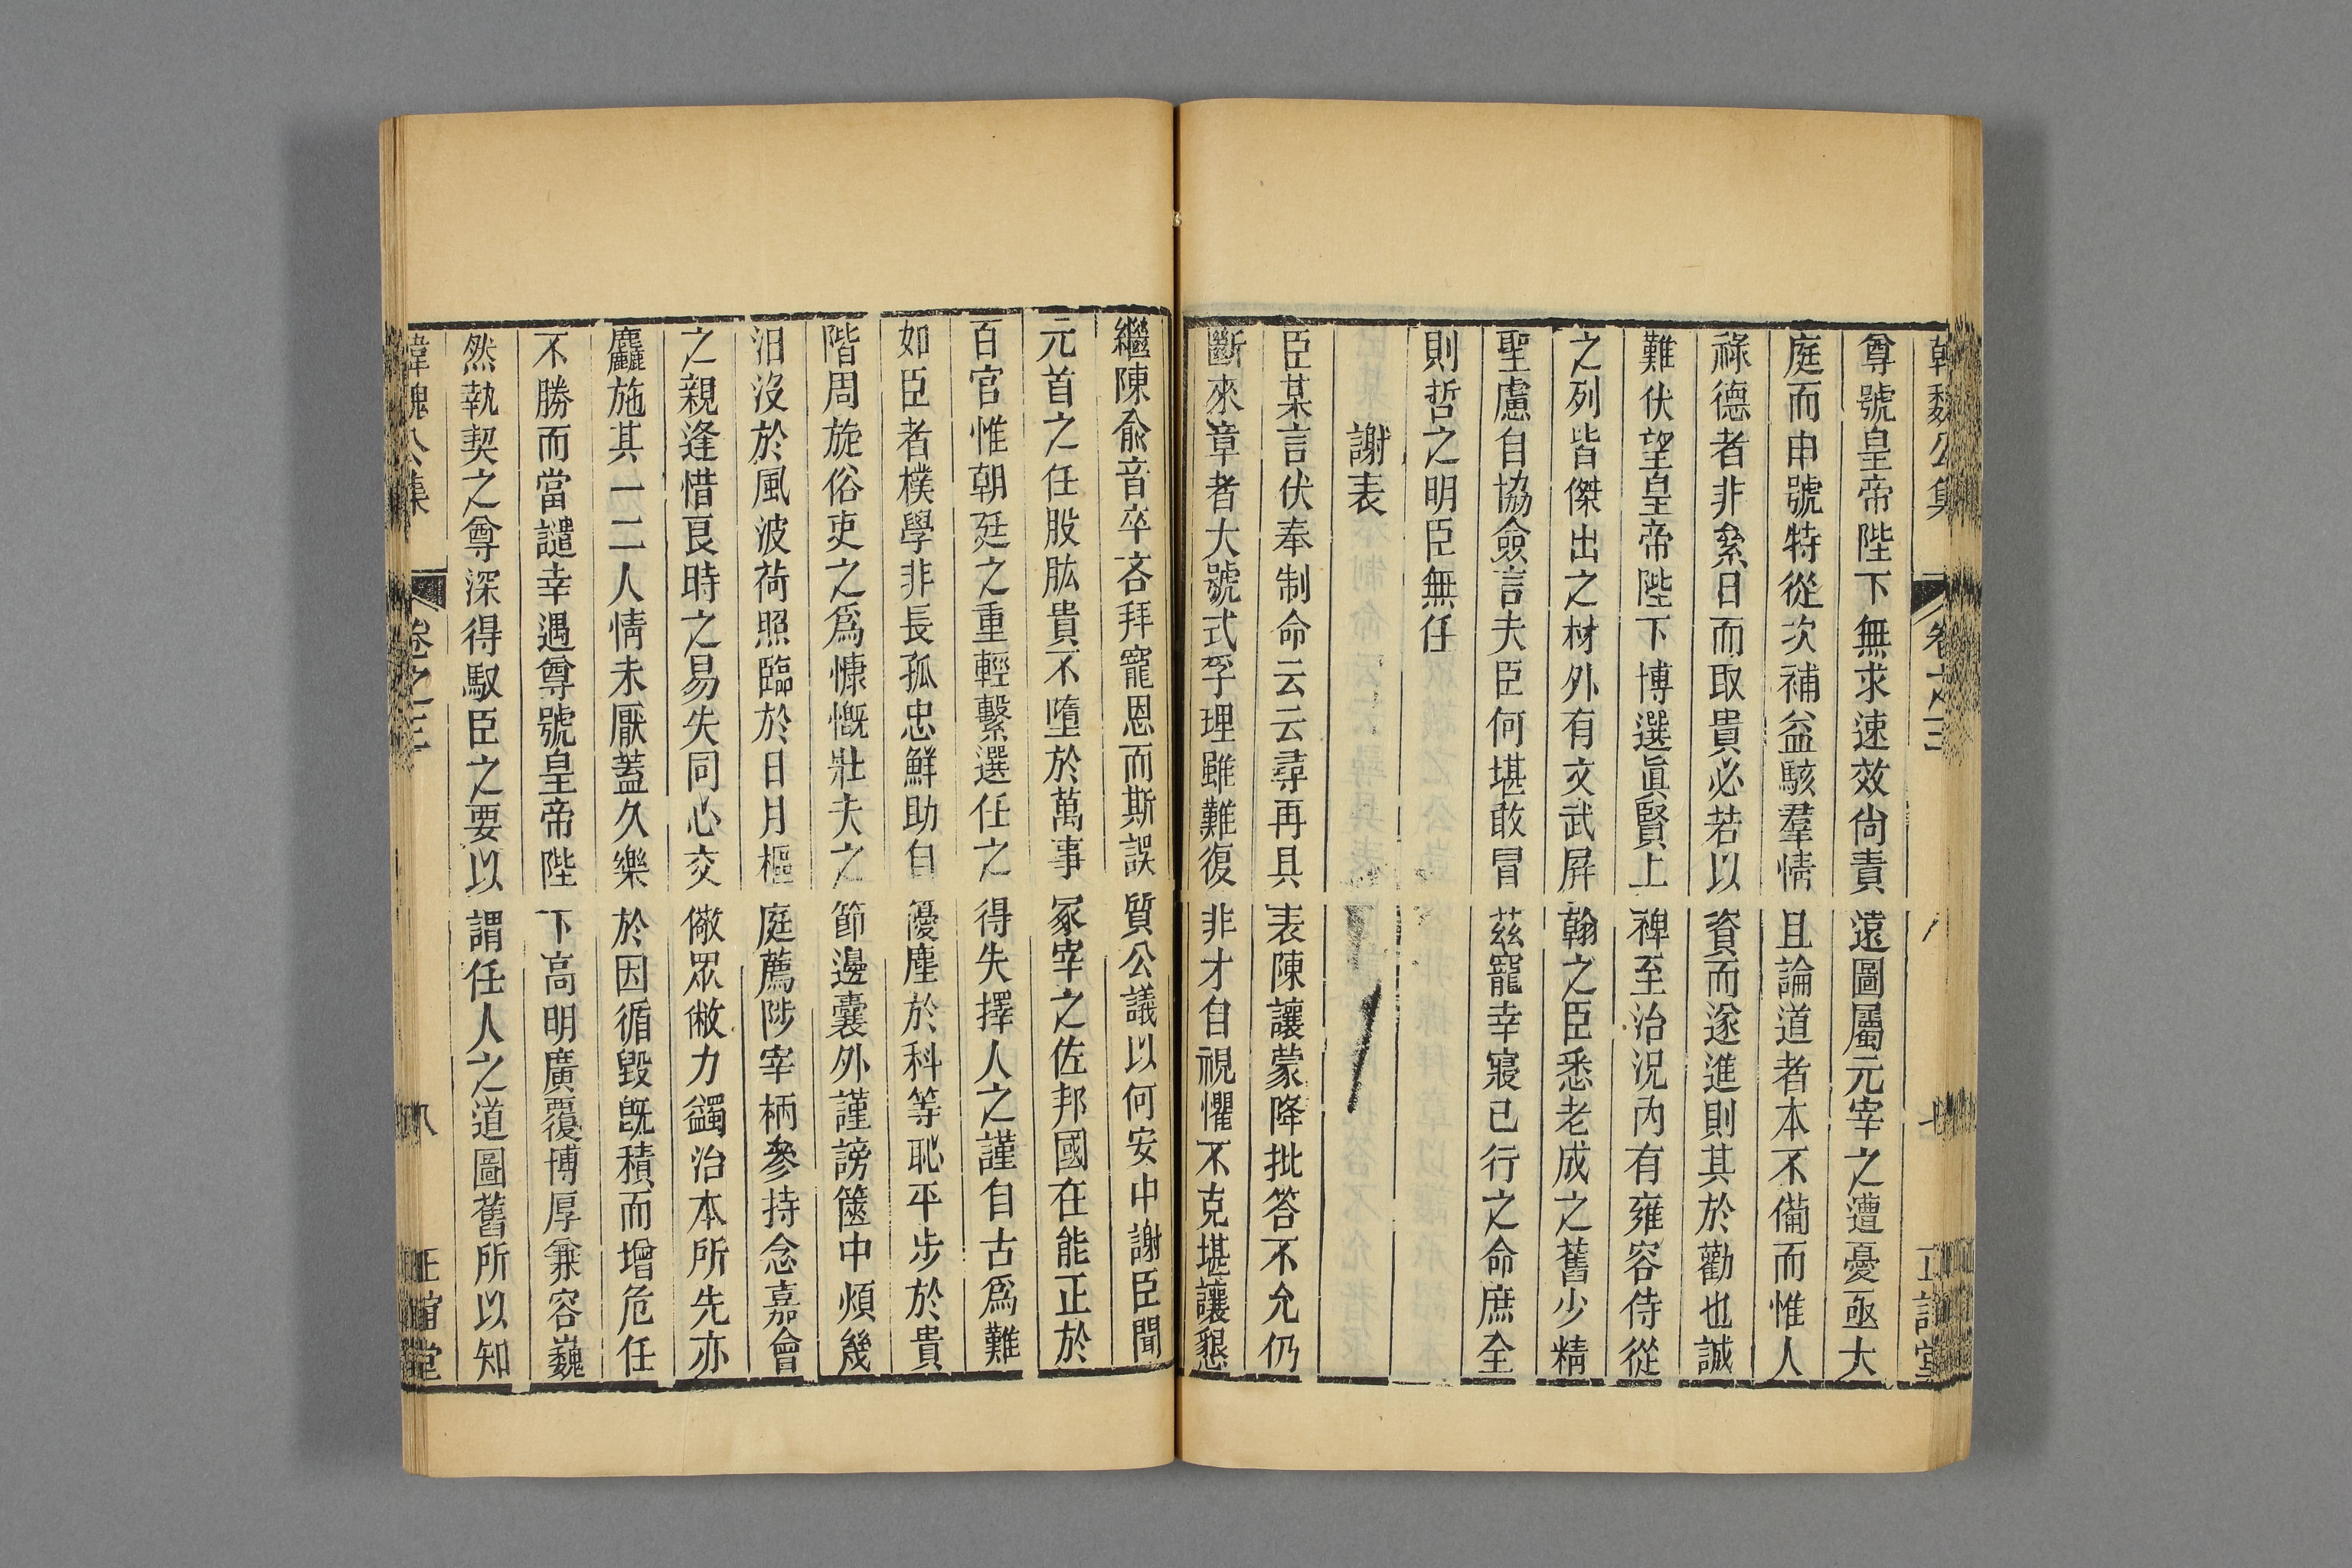 韓魏公集 卷之三 七 正誼堂
尊號皇帝陛下無求速效尙責遠圖屬元宰之遭憂亟大
庭而申號特從次補益駭羣情且論道者本不備而惟人
祿德者非絫日而取貴必若以資而遂進則其於勸也誠
難伏望皇帝陛下博選眞賢上裨至治況內有雍容侍從
之列皆傑出之材外有文武屏翰之臣悉老成之舊少精
聖慮自協僉言夫臣何堪敢冒茲寵幸寢已行之命庶全
則哲之明臣無任
謝表
臣某言伏奉制命云云尋再具表陳讓蒙降批答不允仍
斷來章者大號式孚理雖難復非才自視懼不克堪讓懇
繼陳兪音卒吝拜寵恩而斯誤質公議以何安中謝臣聞
元首之任股肱貴不墮於萬事冢宰之佐邦國在能正於
百官惟朝廷之重輕繫選任之得失擇人之謹自古爲難
如臣者樸學非長孤忠鮮助自優塵於科等恥平步於貴
階周旋俗吏之爲慷慨壯夫之節邊囊外謹謗篋中煩幾
汨沒於風波荷照臨於日月樞庭薦陟宰柄參持念嘉會
之親逢惜良時之易失同心交儆眾懘力蠲治本所先亦
麤施其一二人情未厭蓋久樂於因循毀旣積而增危任
不勝而當譴幸遇尊號皇帝陛下高明廣覆博厚兼容巍
然執契之尊深得馭臣之要以謂任人之道圖舊所以知
韓魏公集 卷之三 八 正誼堂